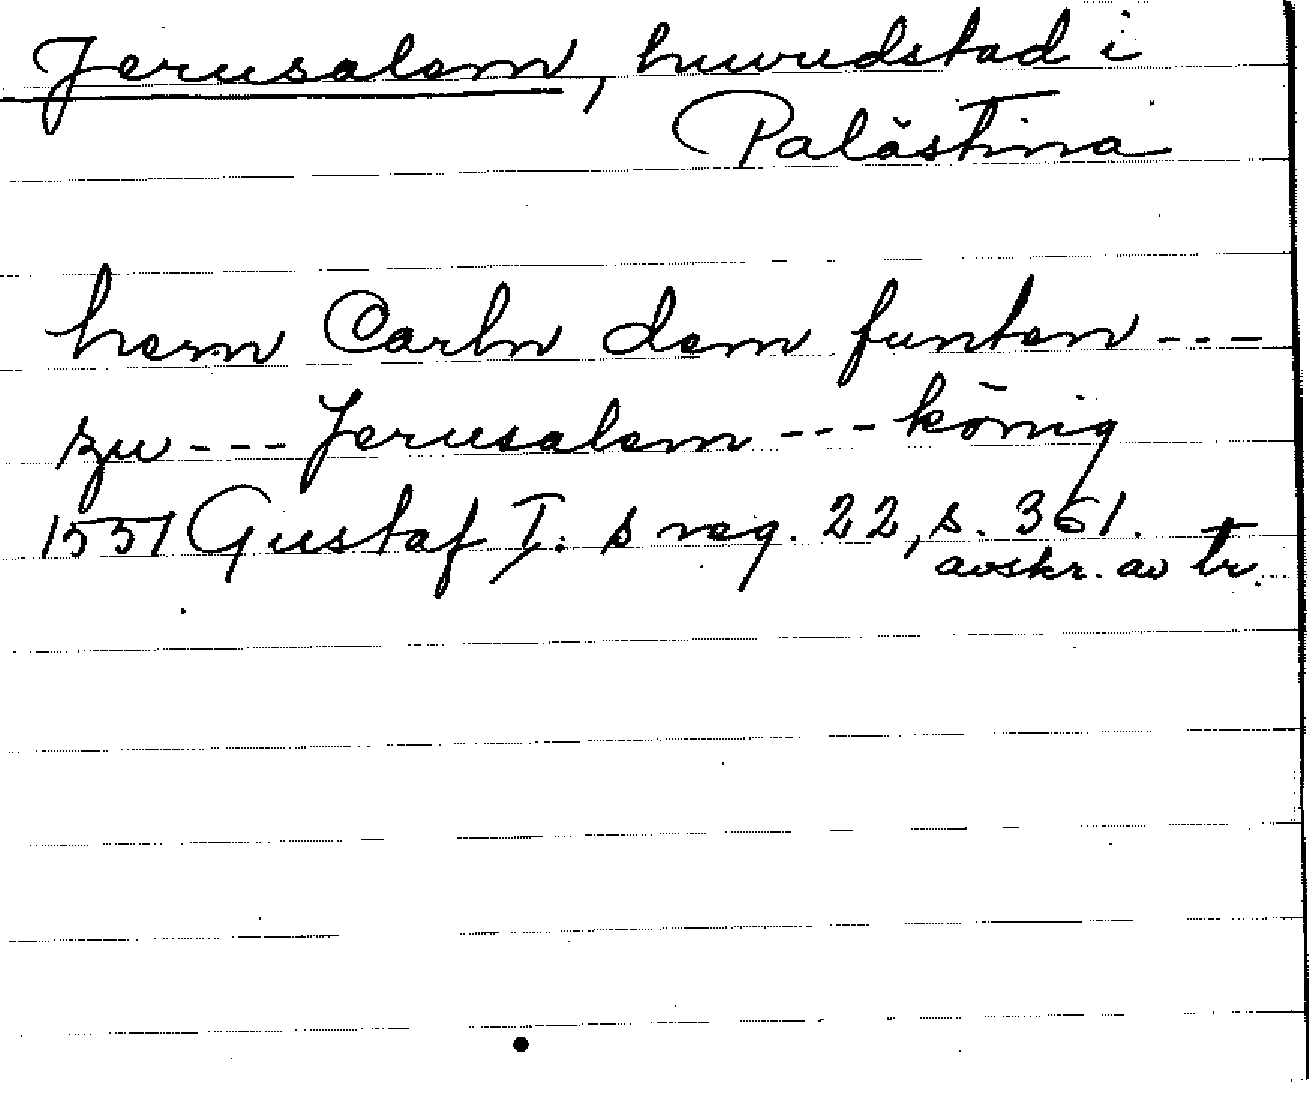 Jerusalem, huvudstad i
Palästina
hern Carln dem funten ---
zu --- Jerusalem --- könig
1551 Gustaf I:s reg. 22, s. 361.
avskr. av tr.